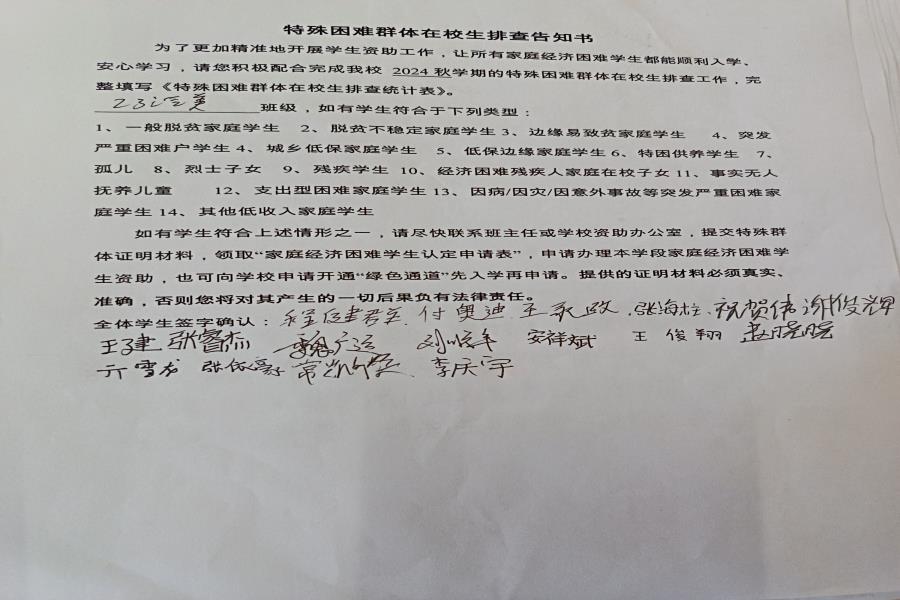 特殊困难群体在校生排查告知书
为了更加精准地开展学生资助工作，让所有家庭经济困难学生都能顺利入学、
安心学习，请您积极配合完成我校 2024 秋学期的特殊困难群体在校生排查工作，完
整填写《特殊困难群体在校生排查统计表》。
班级，如有学生符合于下列类型：
1、一般脱贫家庭学生 2、脱贫不稳定家庭学生 3、边缘易致贫家庭学生 4、突发
严重困难户学生 4、城乡低保家庭学生 5、低保边缘家庭学生 6、特困供养学生 7、
孤儿 8、烈士子女 9、残疾学生 10、经济困难残疾人家庭在校子女 11、事实无人
抚养儿童 12、支出型困难家庭学生 13、因病/因灾/因意外事故等突发严重困难家
庭学生 14、其他低收入家庭学生
如有学生符合上述情形之一，请尽快联系班主任或学校资助办公室，提交特殊群
体证明材料，领取“家庭经济困难学生认定申请表”，申请办理本学段家庭经济困难学
生资助，也可向学校申请开通“绿色通道”先入学再申请。提供的证明材料必须真实、
准确，否则您将对其产生的一切后果负有法律责任。
全体学生签字确认： 付奥迪 王永政 张海柱 祝贺伟 谢俊辉
王建 张睿杰 魏广运 安祥斌 王俊翔 赵晓晓
亓雪龙 张依豪 李庆宇